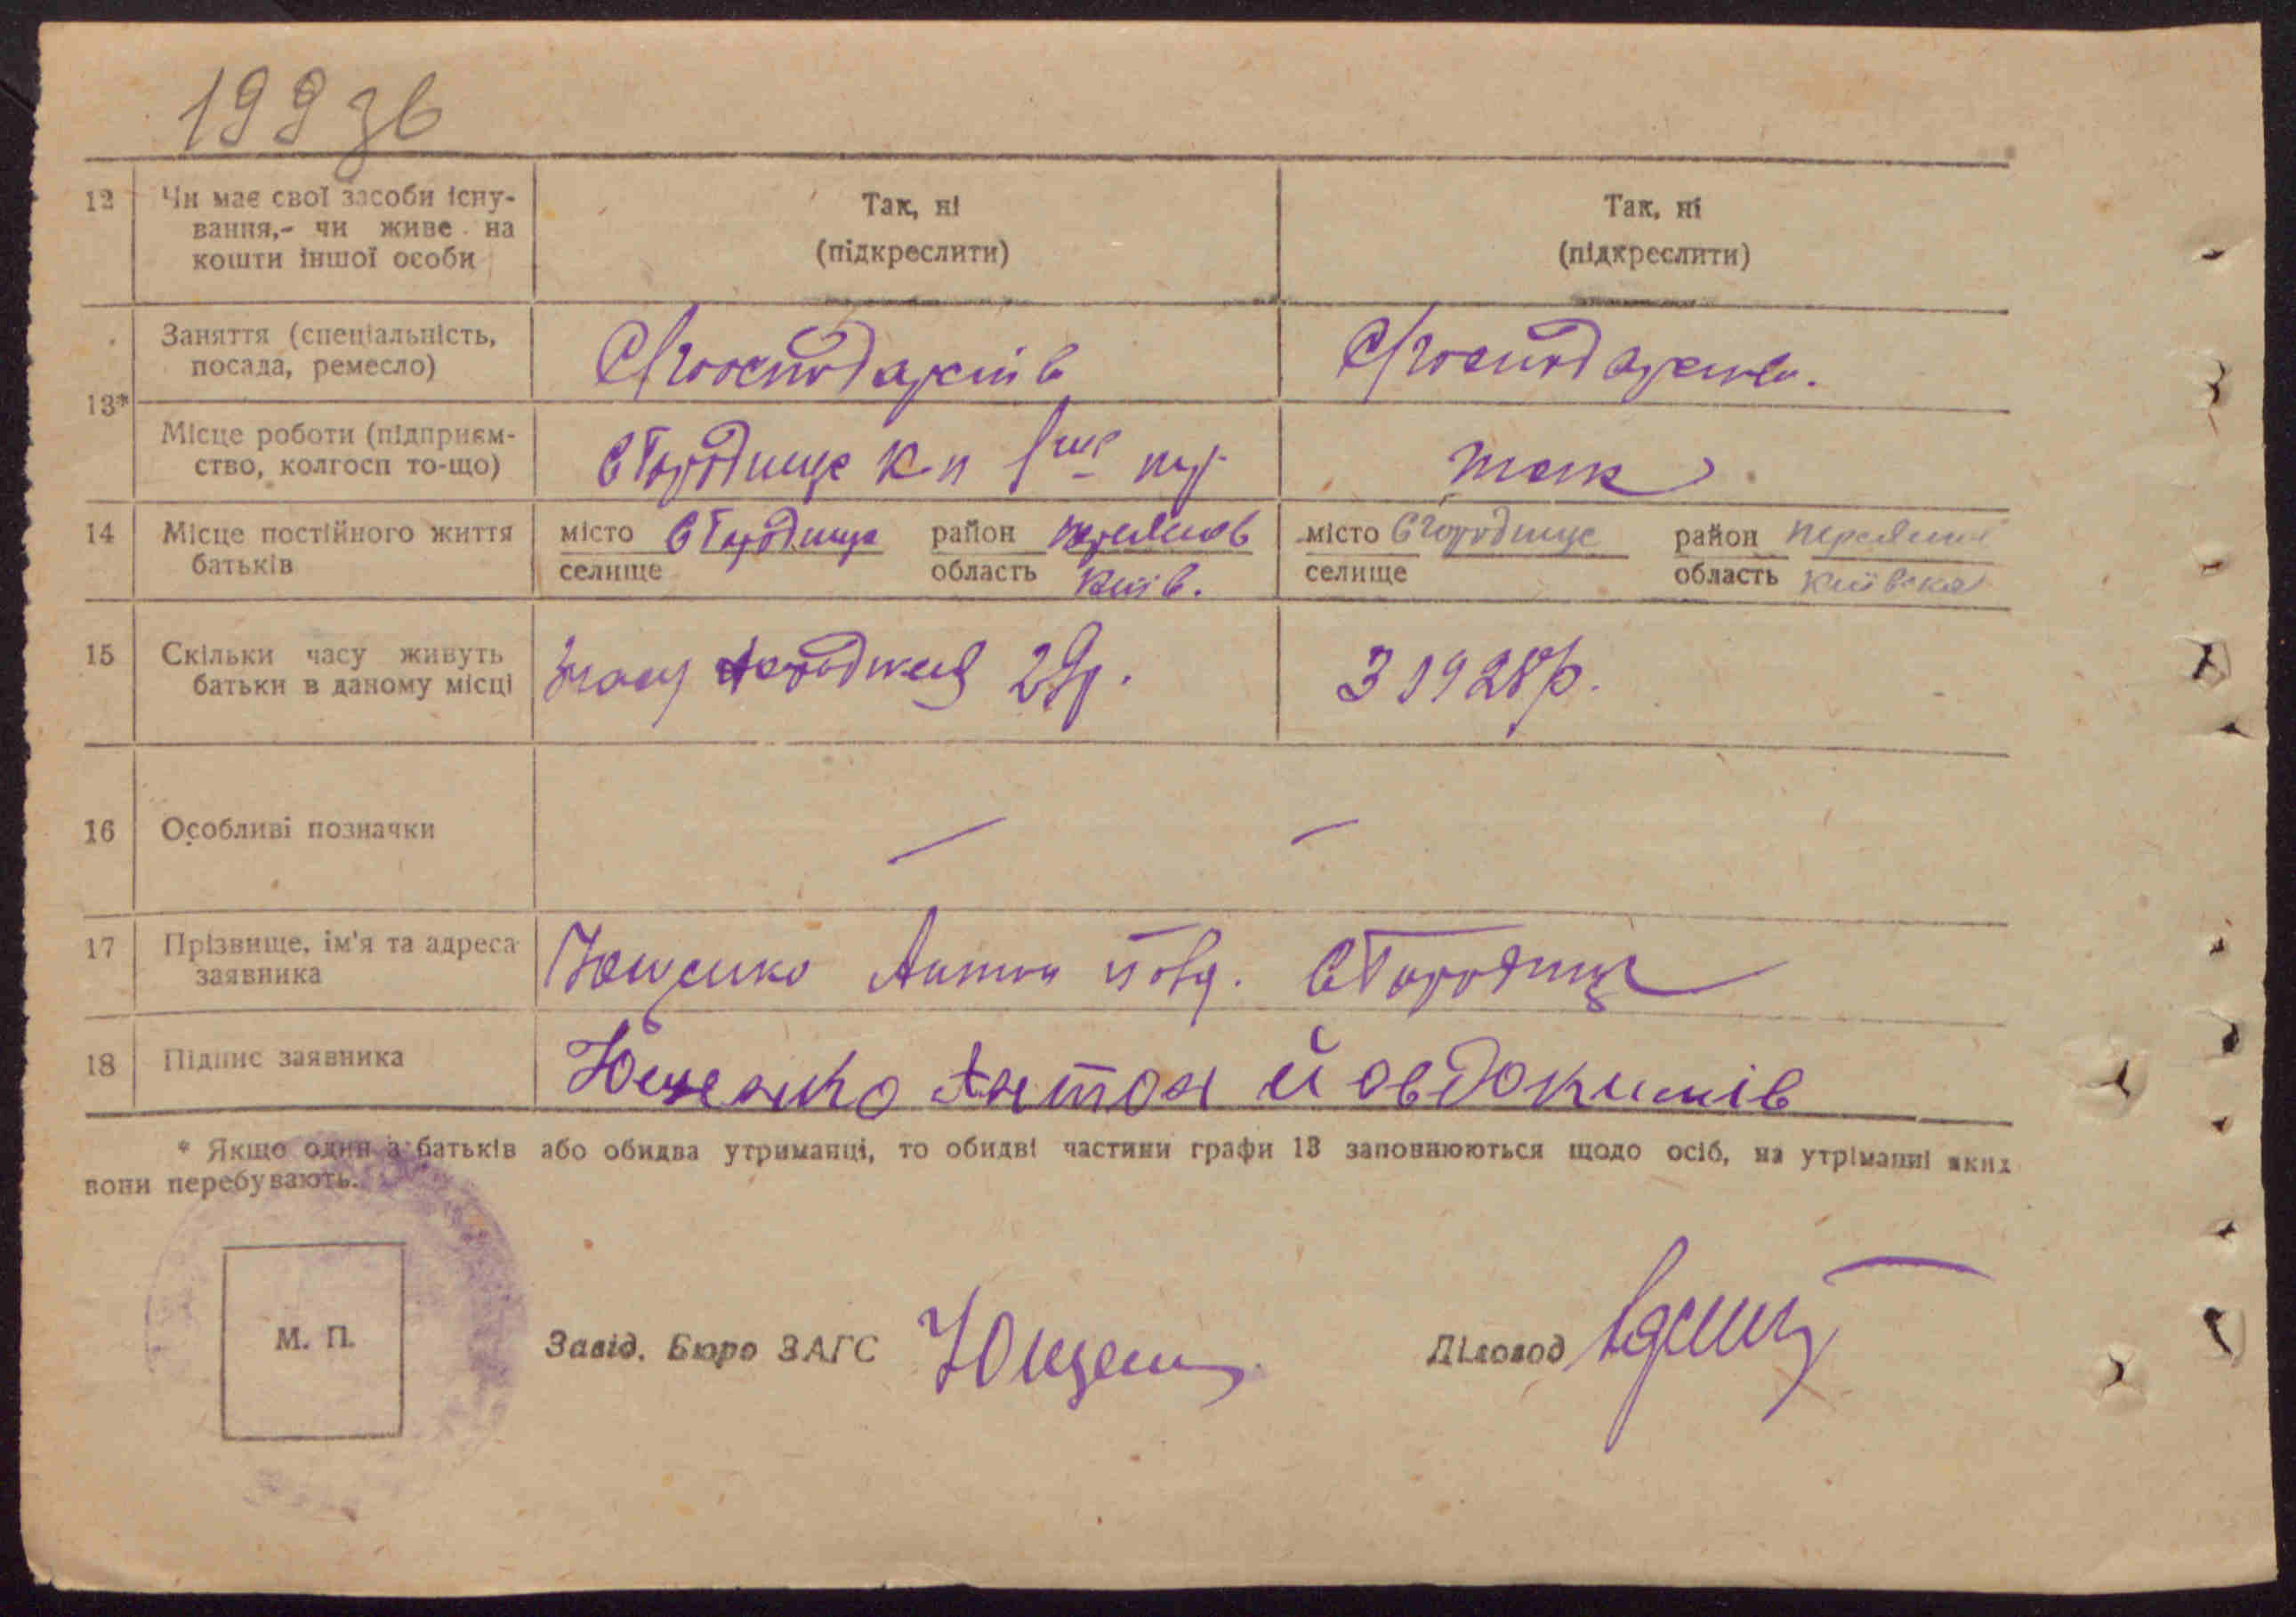 199 зв
12 Чи має свої засоби існу-
вання,- чи живе на
кошти іншої особи
Так, ні
(підкреслити)
Так, ні
(підкреслити)
13*
Заняття (спеціальність,
посада, ремесло)
Місце роботи (підприєм-
ство, колгосп то-що)
с Городище к-п
так
14 Місце постійного життя
батьків
місто с Городище район
селище область Київ.
місто с Городище район
селище область Київська
15 Скільки часу живуть
батьки в даному місці
29р.
З 1928р.
16 Особливі позначки
— —
17 Прізвище, ім'я та адреса
заявника
Ющенко Антон Йовд. с Городище
18 Підпис заявника
Ющенко Антон Йовдокимів
* Якщо один з батьків або обидва утриманці, то обидві частини графи 13 заповнюються щодо осіб, на утріманні яких
вони перебувають.
М. П.
Завід. Бюро ЗАГС Ющен
Діловод